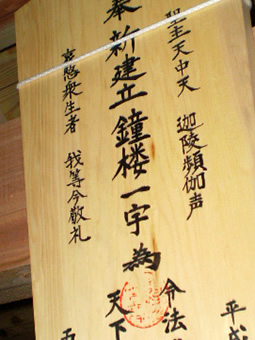 聖主天中天 迦陵頻伽声
奉新建立鐘楼一宇為
哀愍衆生者 我等今敬礼
平成
令法
天下